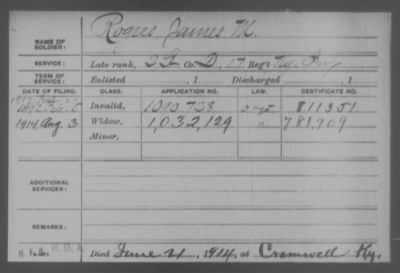 NAME OF SOLDIER: Rogers James M.
SERVICE: Late rank, 2 L Co. D, 17 Reg't Ky. Inf.
TERM OF SERVICE: Enlisted , 1 Discharged , 1
DATE OF FILING. CLASS. APPLICATION NO. LAW. CERTIFICATE NO.
Invalid, 1040738 811351
1914, Aug. 3 Widow, 1,032,129 a. 781,909
Minor,
ADDITIONAL SERVICES:
REMARKS:
Died June 21, 1914, at Cromwell Ky.